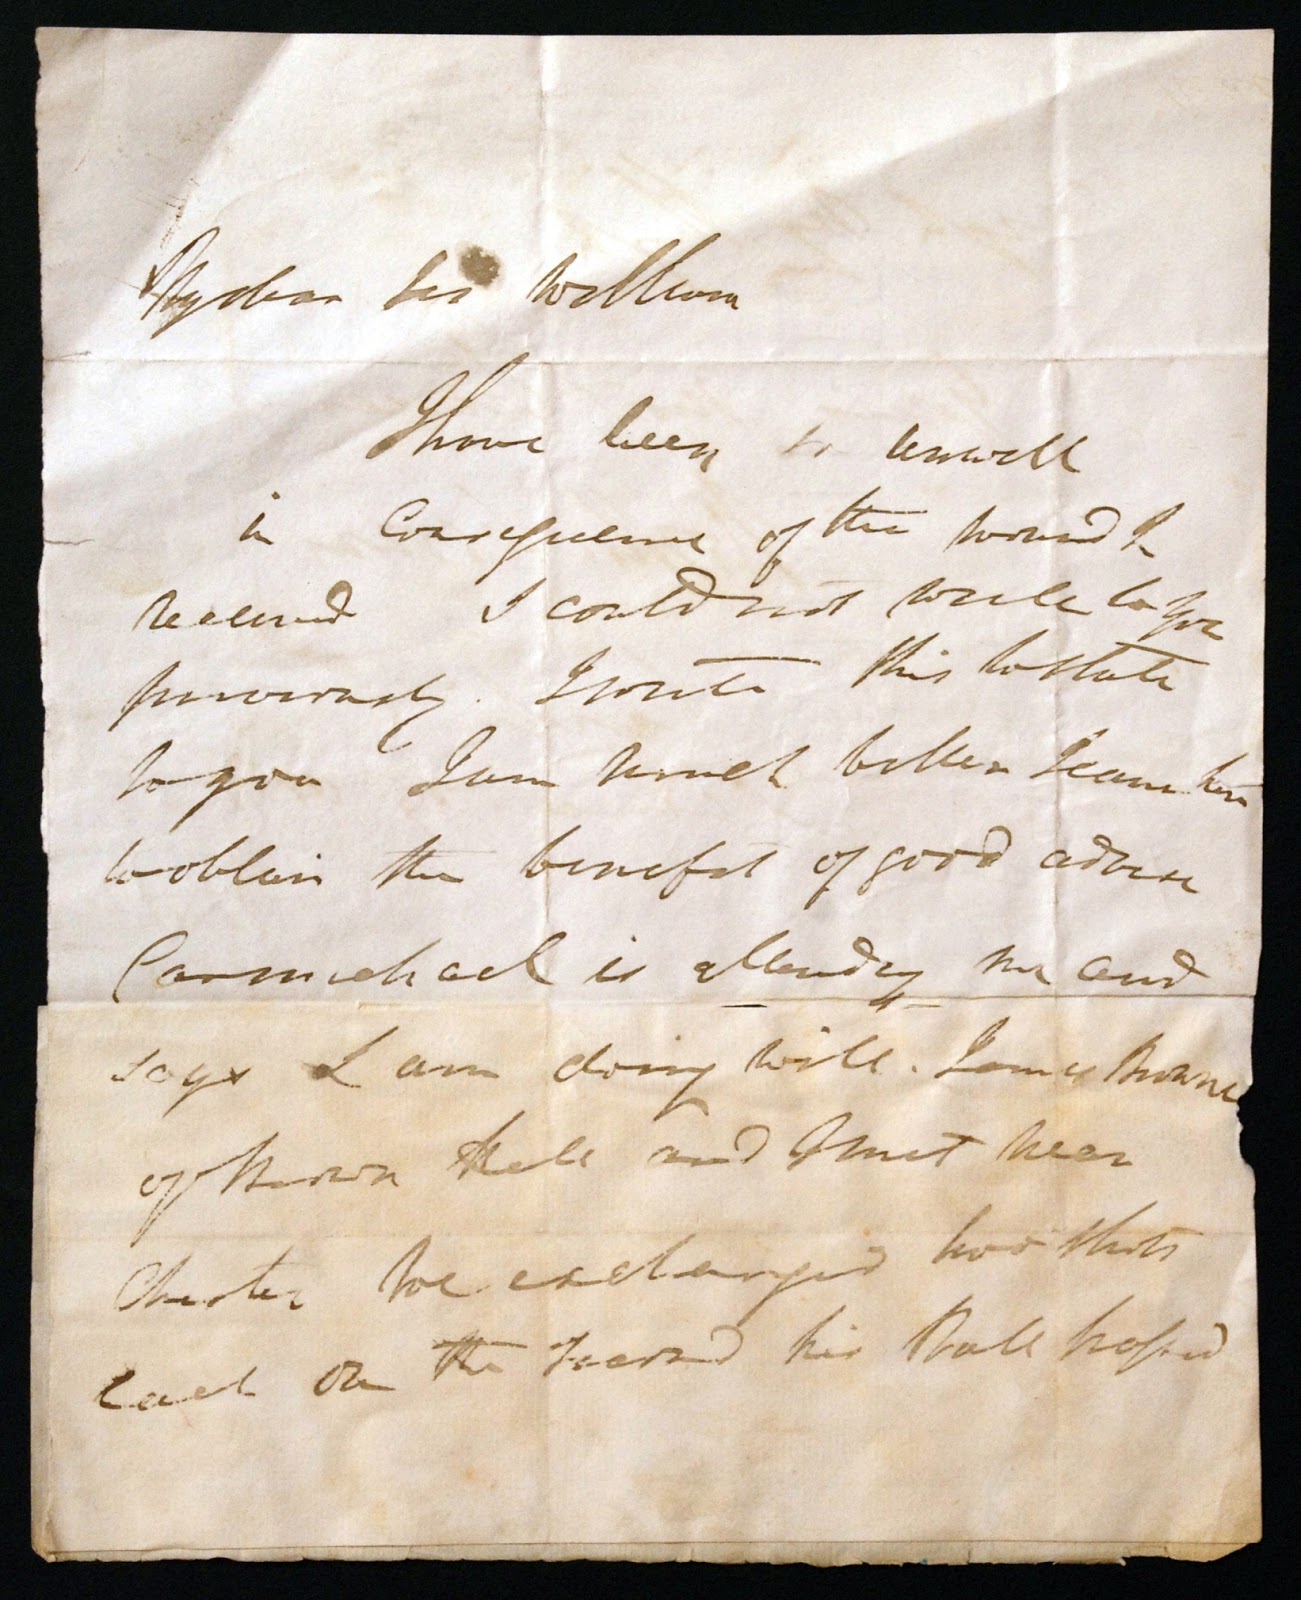 My dear Sir William
I have been so unwell
in Consequence of the wound I
received I could not write to you
previously. I write this to state
to you I am much better I came here
to obtain the benefit of good advise
Carmichael is attending me and
says I am doing well. James Browne
of Brown Hall and I met near
Chester We exchanged two shots
each on the second his Ball passed